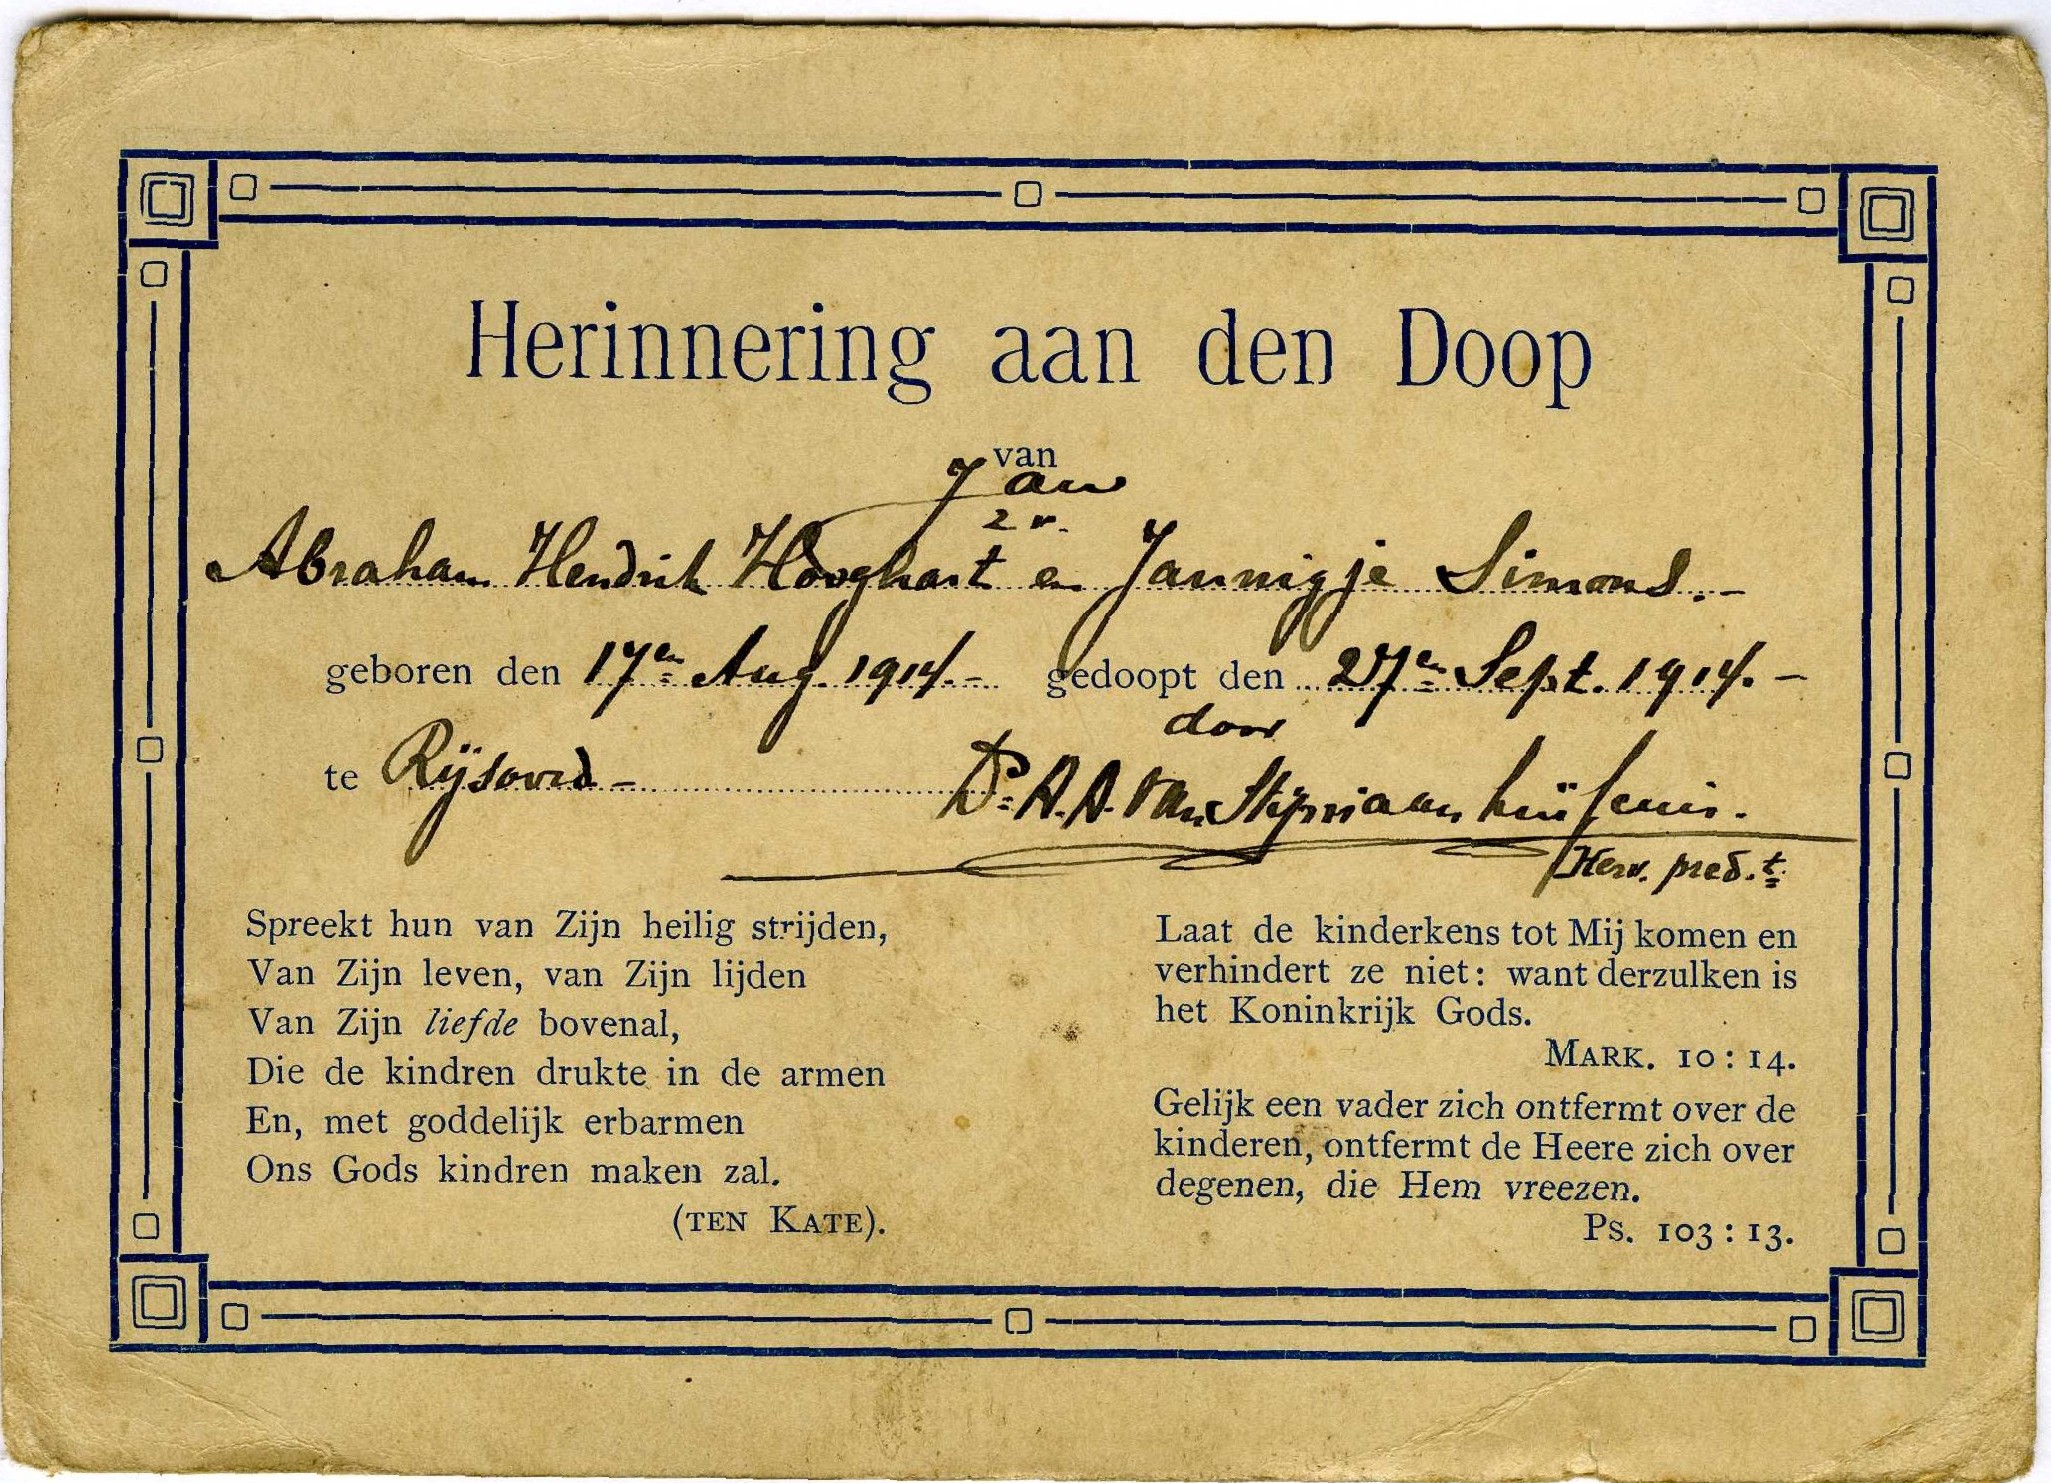 Herinnering aan den Doop
van
Jan
z v.
Abraham Hendrik Hooghart en Jannigje Simons.-
geboren den 17en Aug. 1914.- gedoopt den 27en Sept. 1914.-
door
te Rijsoord- Ds. A. A. van Stipriaan Luïscius.
Herv. pred.t
Spreekt hun van Zijn heilig strijden,
Van Zijn leven, van Zijn lijden
Van Zijn liefde bovenal,
Die de kindren drukte in de armen
En, met goddelijk erbarmen
Ons Gods kindren maken zal.
(TEN KATE).
Laat de kinderkens tot Mij komen en
verhindert ze niet: want derzulken is
het Koninkrijk Gods.
MARK. 10 : 14.
Gelijk een vader zich ontfermt over de
kinderen, ontfermt de Heere zich over
degenen, die Hem vreezen.
Ps. 103 : 13.